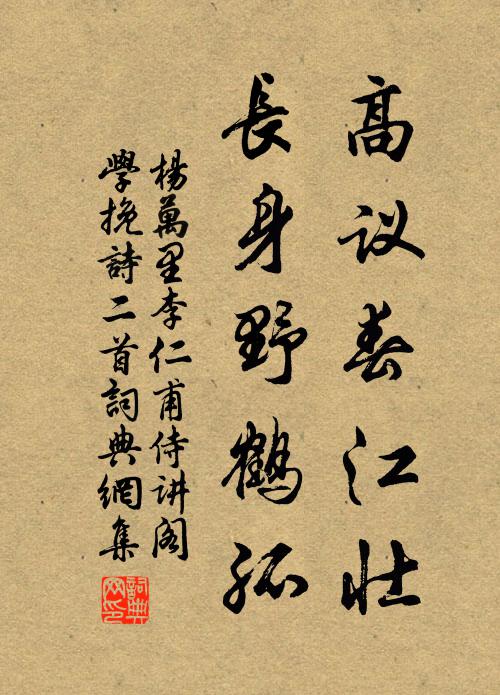 高议春江壮
長身野鶴孤
楊萬里李仁甫侍讲阁
學挽詩二首詞典網集
詞典
网印